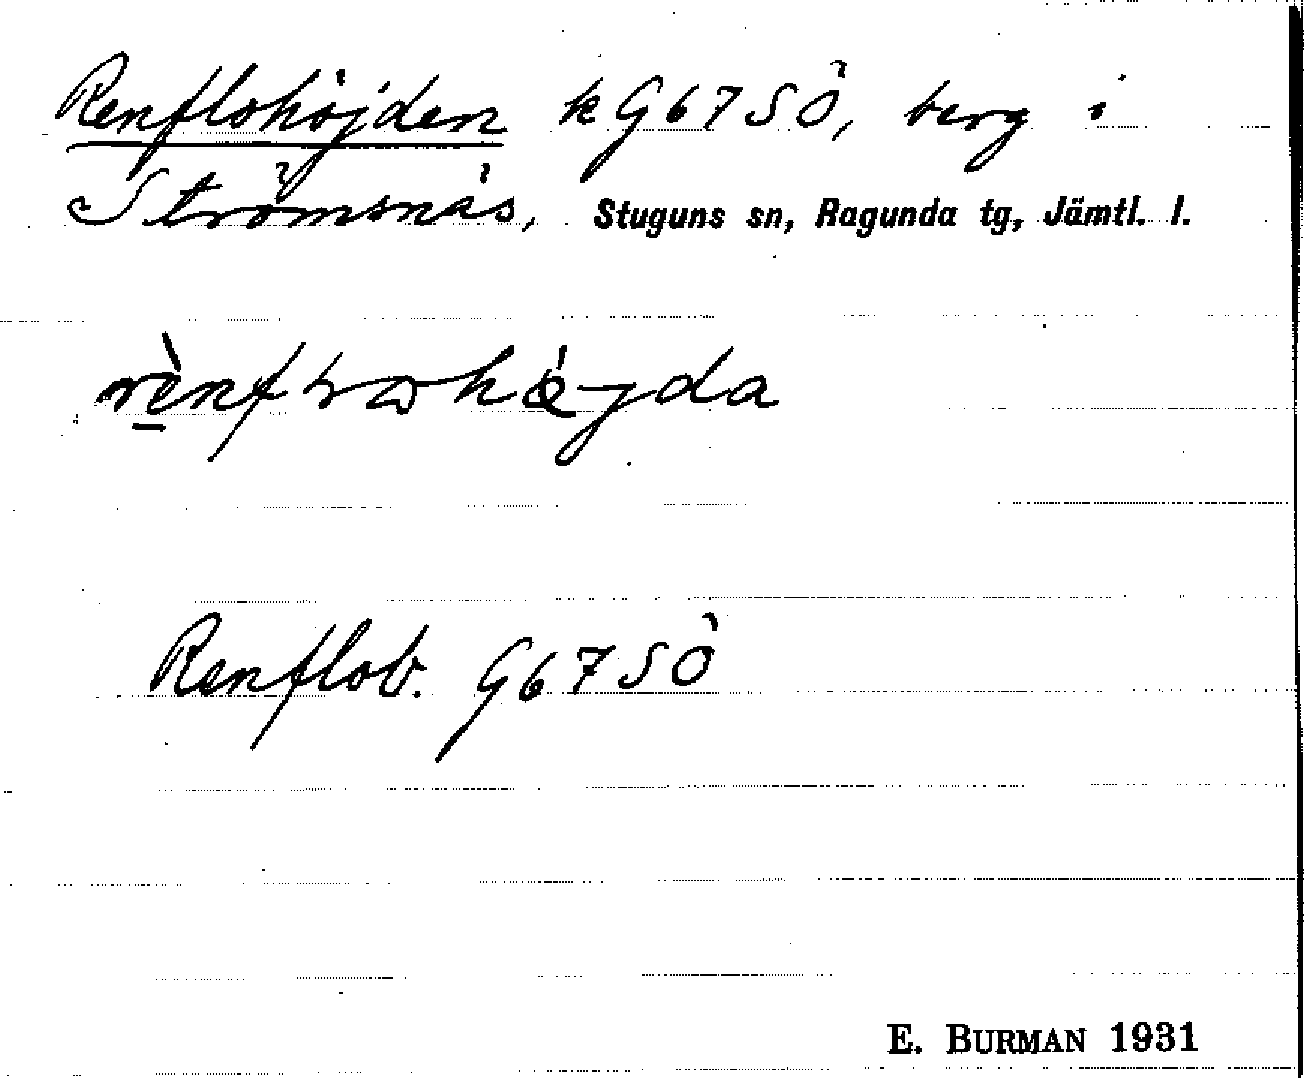 Renflohöjden k G67SÖ, berg i
Strömsnäs, Stuguns sn, Ragunda tg, Jämtl. l.
Renflob. G67SÖ
E. BURMAN 1931